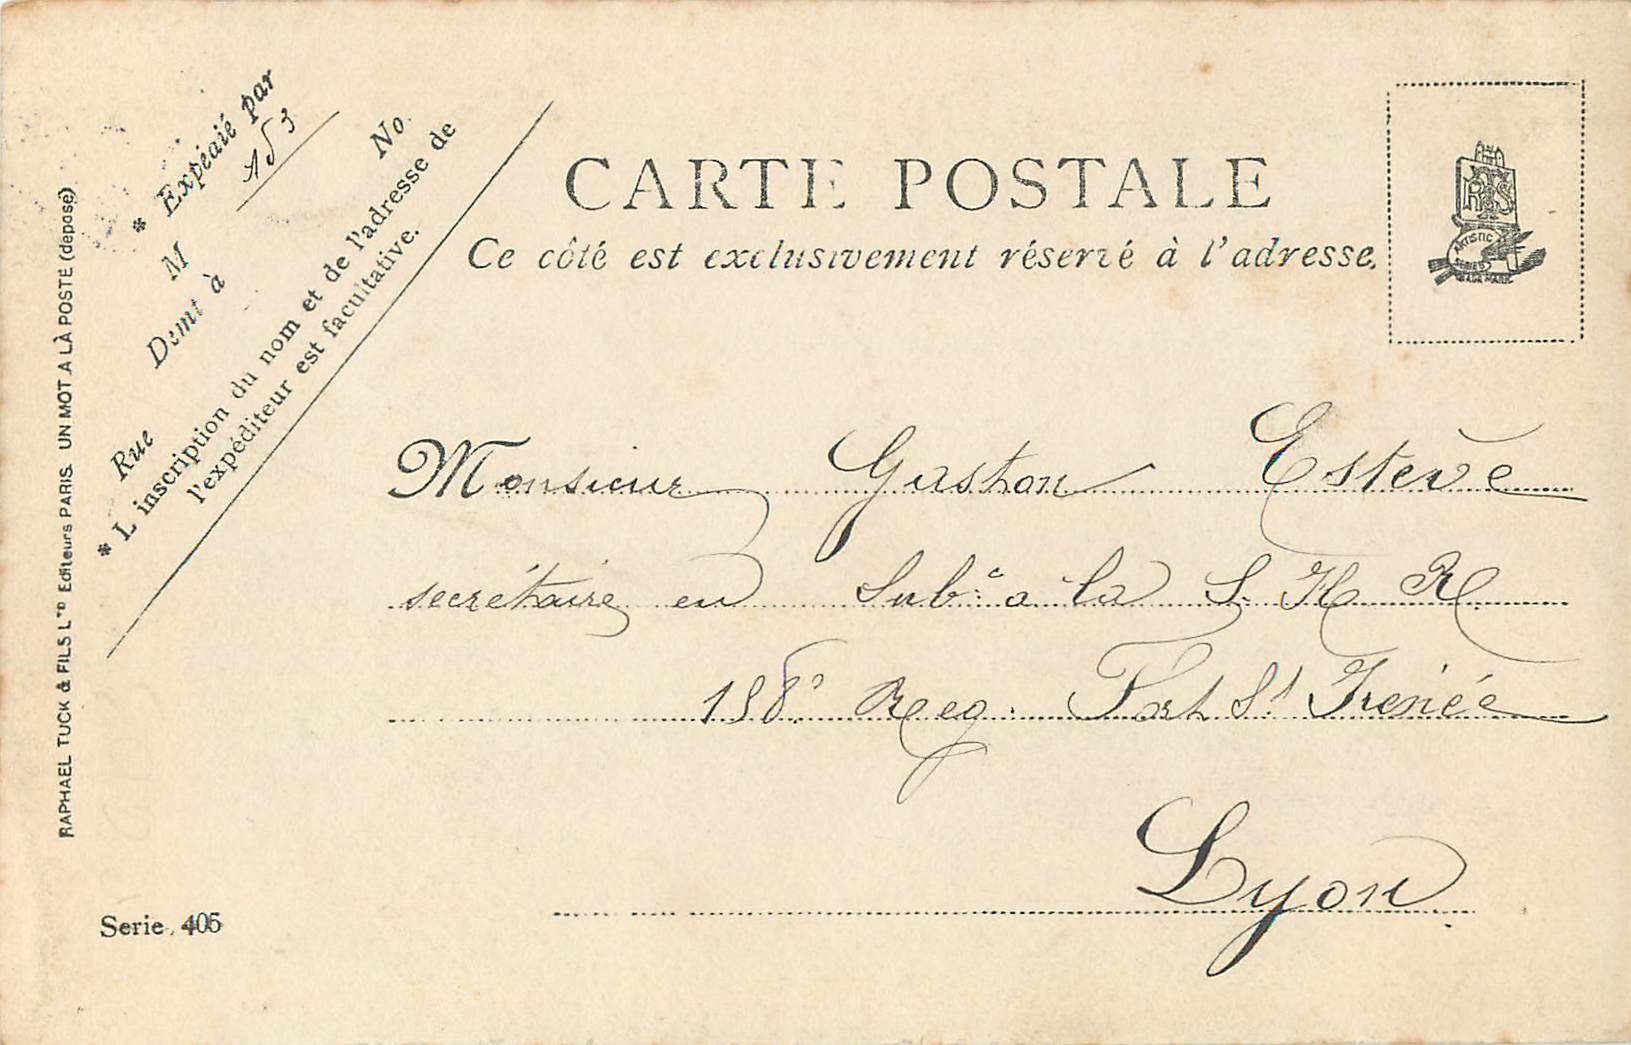 * Expédié par
M
Demt à
Rue No
* L'inscription du nom et de l'adresse de
l'expéditeur est facultative.
CARTE POSTALE
Ce côté est exclusivement réservé à l'adresse.
RTS
ARTISTIC
SERIES
RAPHAEL TUCK & FILS Lted Editeurs PARIS. UN MOT A LÀ POSTE (deposé)
Monsieur Gaston Estève
secrétaire en Sub. a la S. H. R.
158e Reg. Fort St Irenée
Lyon
Serie 405